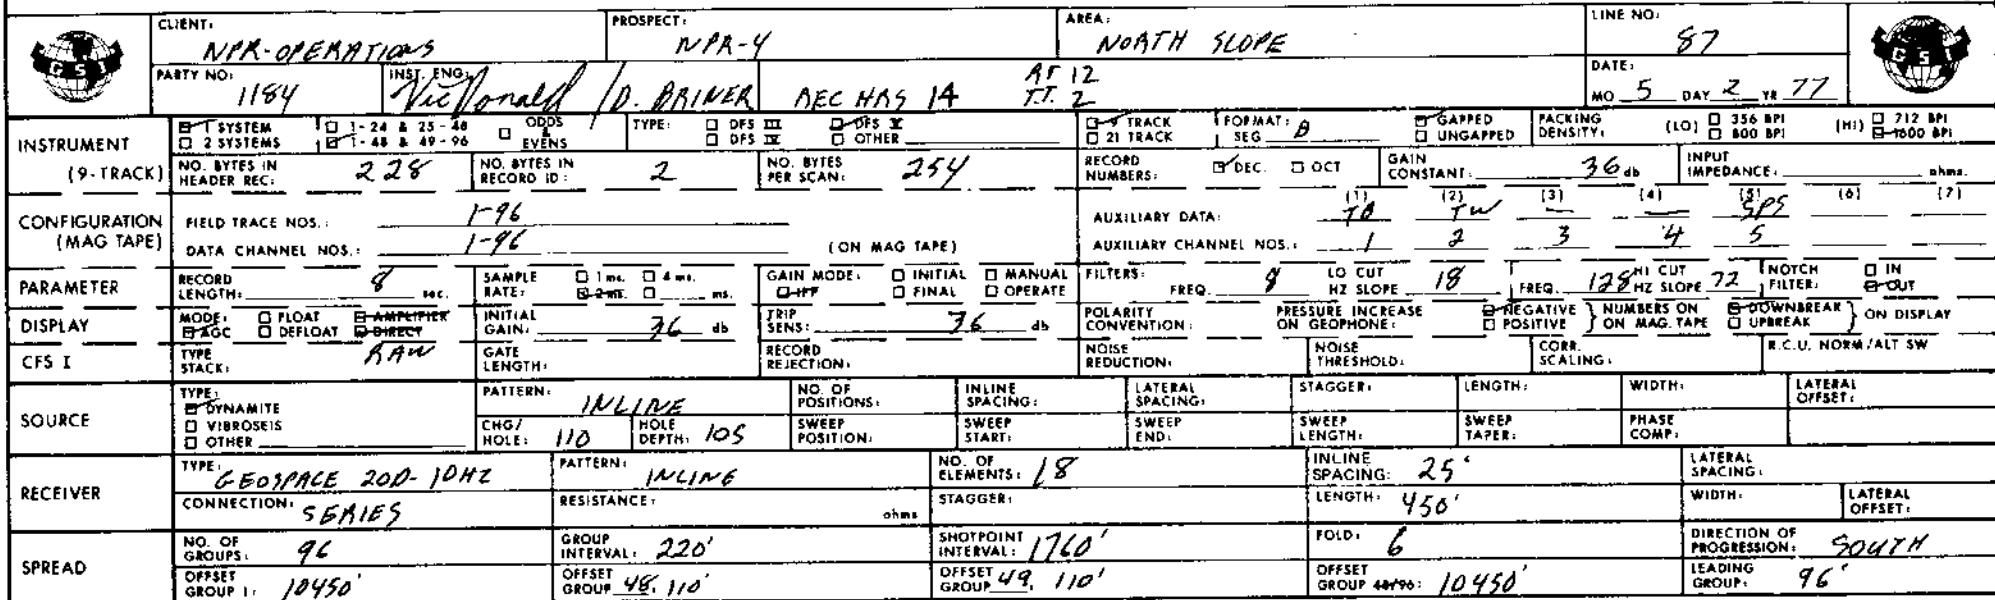 CLIENT: NPR-OPERATIONS PROSPECT: NPR-4 AREA: NORTH SLOPE LINE NO: 87
GSI
PARTY NO: 1184 INST. ENG: Vic Donald / D. BRINER REC HRS 14 RT 12 T.T. 2 DATE: MO 5 DAY 2 YR 77
GSI
INSTRUMENT (9-TRACK)
1 SYSTEM 1-24 & 25-48 ODDS & EVENS TYPE: DFS III DFS V 9 TRACK FORMAT: SEG B GAPPED PACKING DENSITY: (LO) 356 BPI (HI) 712 BPI
2 SYSTEMS 1-48 & 49-96 DFS IV OTHER 21 TRACK UNGAPPED 800 BPI 1600 BPI
NO. BYTES IN HEADER REC: 228 NO. BYTES IN RECORD ID: 2 NO. BYTES PER SCAN: 254 RECORD NUMBERS: DEC. OCT GAIN CONSTANT: 36 db INPUT IMPEDANCE: ohms.
CONFIGURATION (MAG TAPE)
FIELD TRACE NOS.: 1-96 AUXILIARY DATA: (1) TB (2) TW (3) — (4) — (5) SPS (6) (7)
DATA CHANNEL NOS.: 1-96 (ON MAG TAPE) AUXILIARY CHANNEL NOS.: 1 2 3 4 5
PARAMETER RECORD LENGTH: 8 sec. SAMPLE RATE: 1 ms. 4 ms. 2 ms. ms. GAIN MODE: INITIAL MANUAL IFP FINAL OPERATE FILTERS: FREQ. 8 LO CUT HZ SLOPE 18 FREQ. 128 HI CUT HZ SLOPE 72 NOTCH FILTER: IN OUT
DISPLAY MODE: FLOAT AMPLIFIER AGC DEFLOAT DIRECT INITIAL GAIN: 36 db TRIP SENS: 36 db POLARITY CONVENTION: PRESSURE INCREASE ON GEOPHONE: NEGATIVE POSITIVE NUMBERS ON ON MAG. TAPE DOWNBREAK UPBREAK ON DISPLAY
CFS I TYPE STACK: RAW GATE LENGTH: RECORD REJECTION: NOISE REDUCTION: NOISE THRESHOLD: CORR. SCALING: R.C.U. NORM/ALT SW
SOURCE TYPE: DYNAMITE VIBROSEIS OTHER
PATTERN: INLINE NO. OF POSITIONS: INLINE SPACING: LATERAL SPACING: STAGGER: LENGTH: WIDTH: LATERAL OFFSET:
CHG/HOLE: 110 HOLE DEPTH: 105 SWEEP POSITION: SWEEP START: SWEEP END: SWEEP LENGTH: SWEEP TAPER: PHASE COMP:
RECEIVER TYPE: GEOSPACE 20D-10HZ PATTERN: INLINE NO. OF ELEMENTS: 18 INLINE SPACING: 25' LATERAL SPACING:
CONNECTION: SERIES RESISTANCE: ohms STAGGER: LENGTH: 450' WIDTH: LATERAL OFFSET:
SPREAD NO. OF GROUPS: 96 GROUP INTERVAL: 220' SHOTPOINT INTERVAL: 1760' FOLD: 6 DIRECTION OF PROGRESSION: SOUTH
OFFSET GROUP 1: 10450' OFFSET GROUP 48: 110' OFFSET GROUP 49: 110' OFFSET GROUP 48/96: 10450' LEADING GROUP: 96'